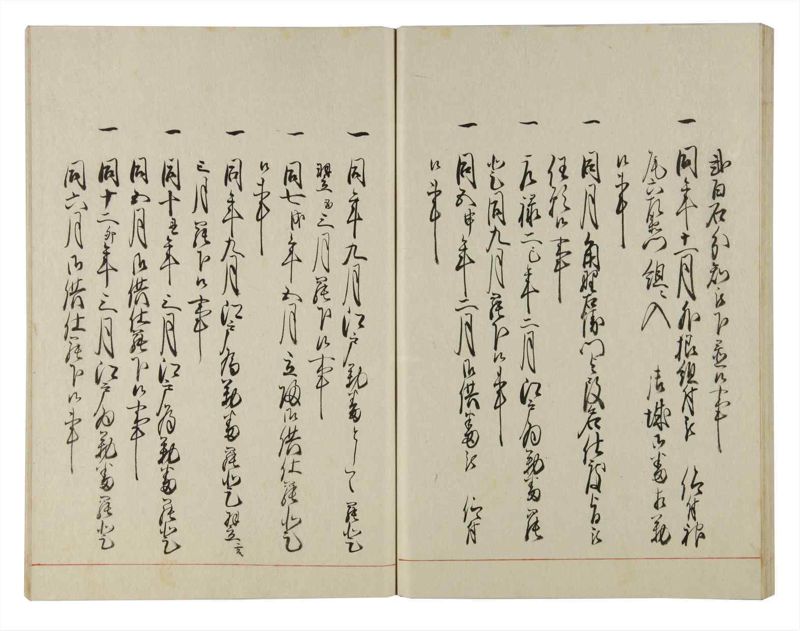 弐百石被下置候事
一 同年十一月組付被 仰付
組え入 御城御番相勤
候事
一 同月角野右衛門と改名仕度旨
任願候事
一 元禄二巳年二月江戸為勤番罷
登同九月罷下候事
一 同五申年二月御供番被 仰付
候事
一 同年九月江戸勤番として罷登
翌酉三月罷下候事
一 同七戌年五月立帰御供仕罷登
候事
一 同年九月江戸為勤番罷登翌亥
三月罷下候事
一 同十丑年三月江戸為勤番罷登
同五月御供仕罷下候事
一 同十二卯年三月江戸為勤番罷登
同六月御供仕罷下候事